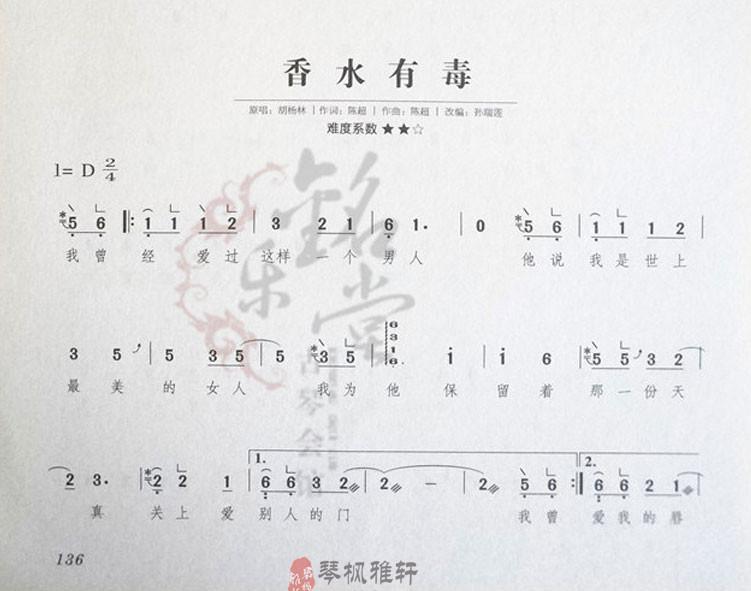 香水有毒
原唱：胡杨林 | 作词：陈超 | 作曲：陈超 | 改编：孙瑞莲
难度系数 ★★☆
1= D 2/4
5 6 1 1 1 2 3 2 1 6 1. 0 5 6 1 1 1 2
我曾 经 爱过 这样 一个 男人 他说 我是世上
6 3 1 6
3 5 5 3 5 5 3 5 i i 6 5 5 3 2
最 美 的 女人 我为 他 保 留 着 那一份天
1. 2.
2 3. 2 2 1 6 6 3 2 2 — 2 5 6 6 6 2 1
真 关上 爱 别人的门 我曾 爱我的唇
136
铭乐堂
古琴会馆
琴枫雅轩